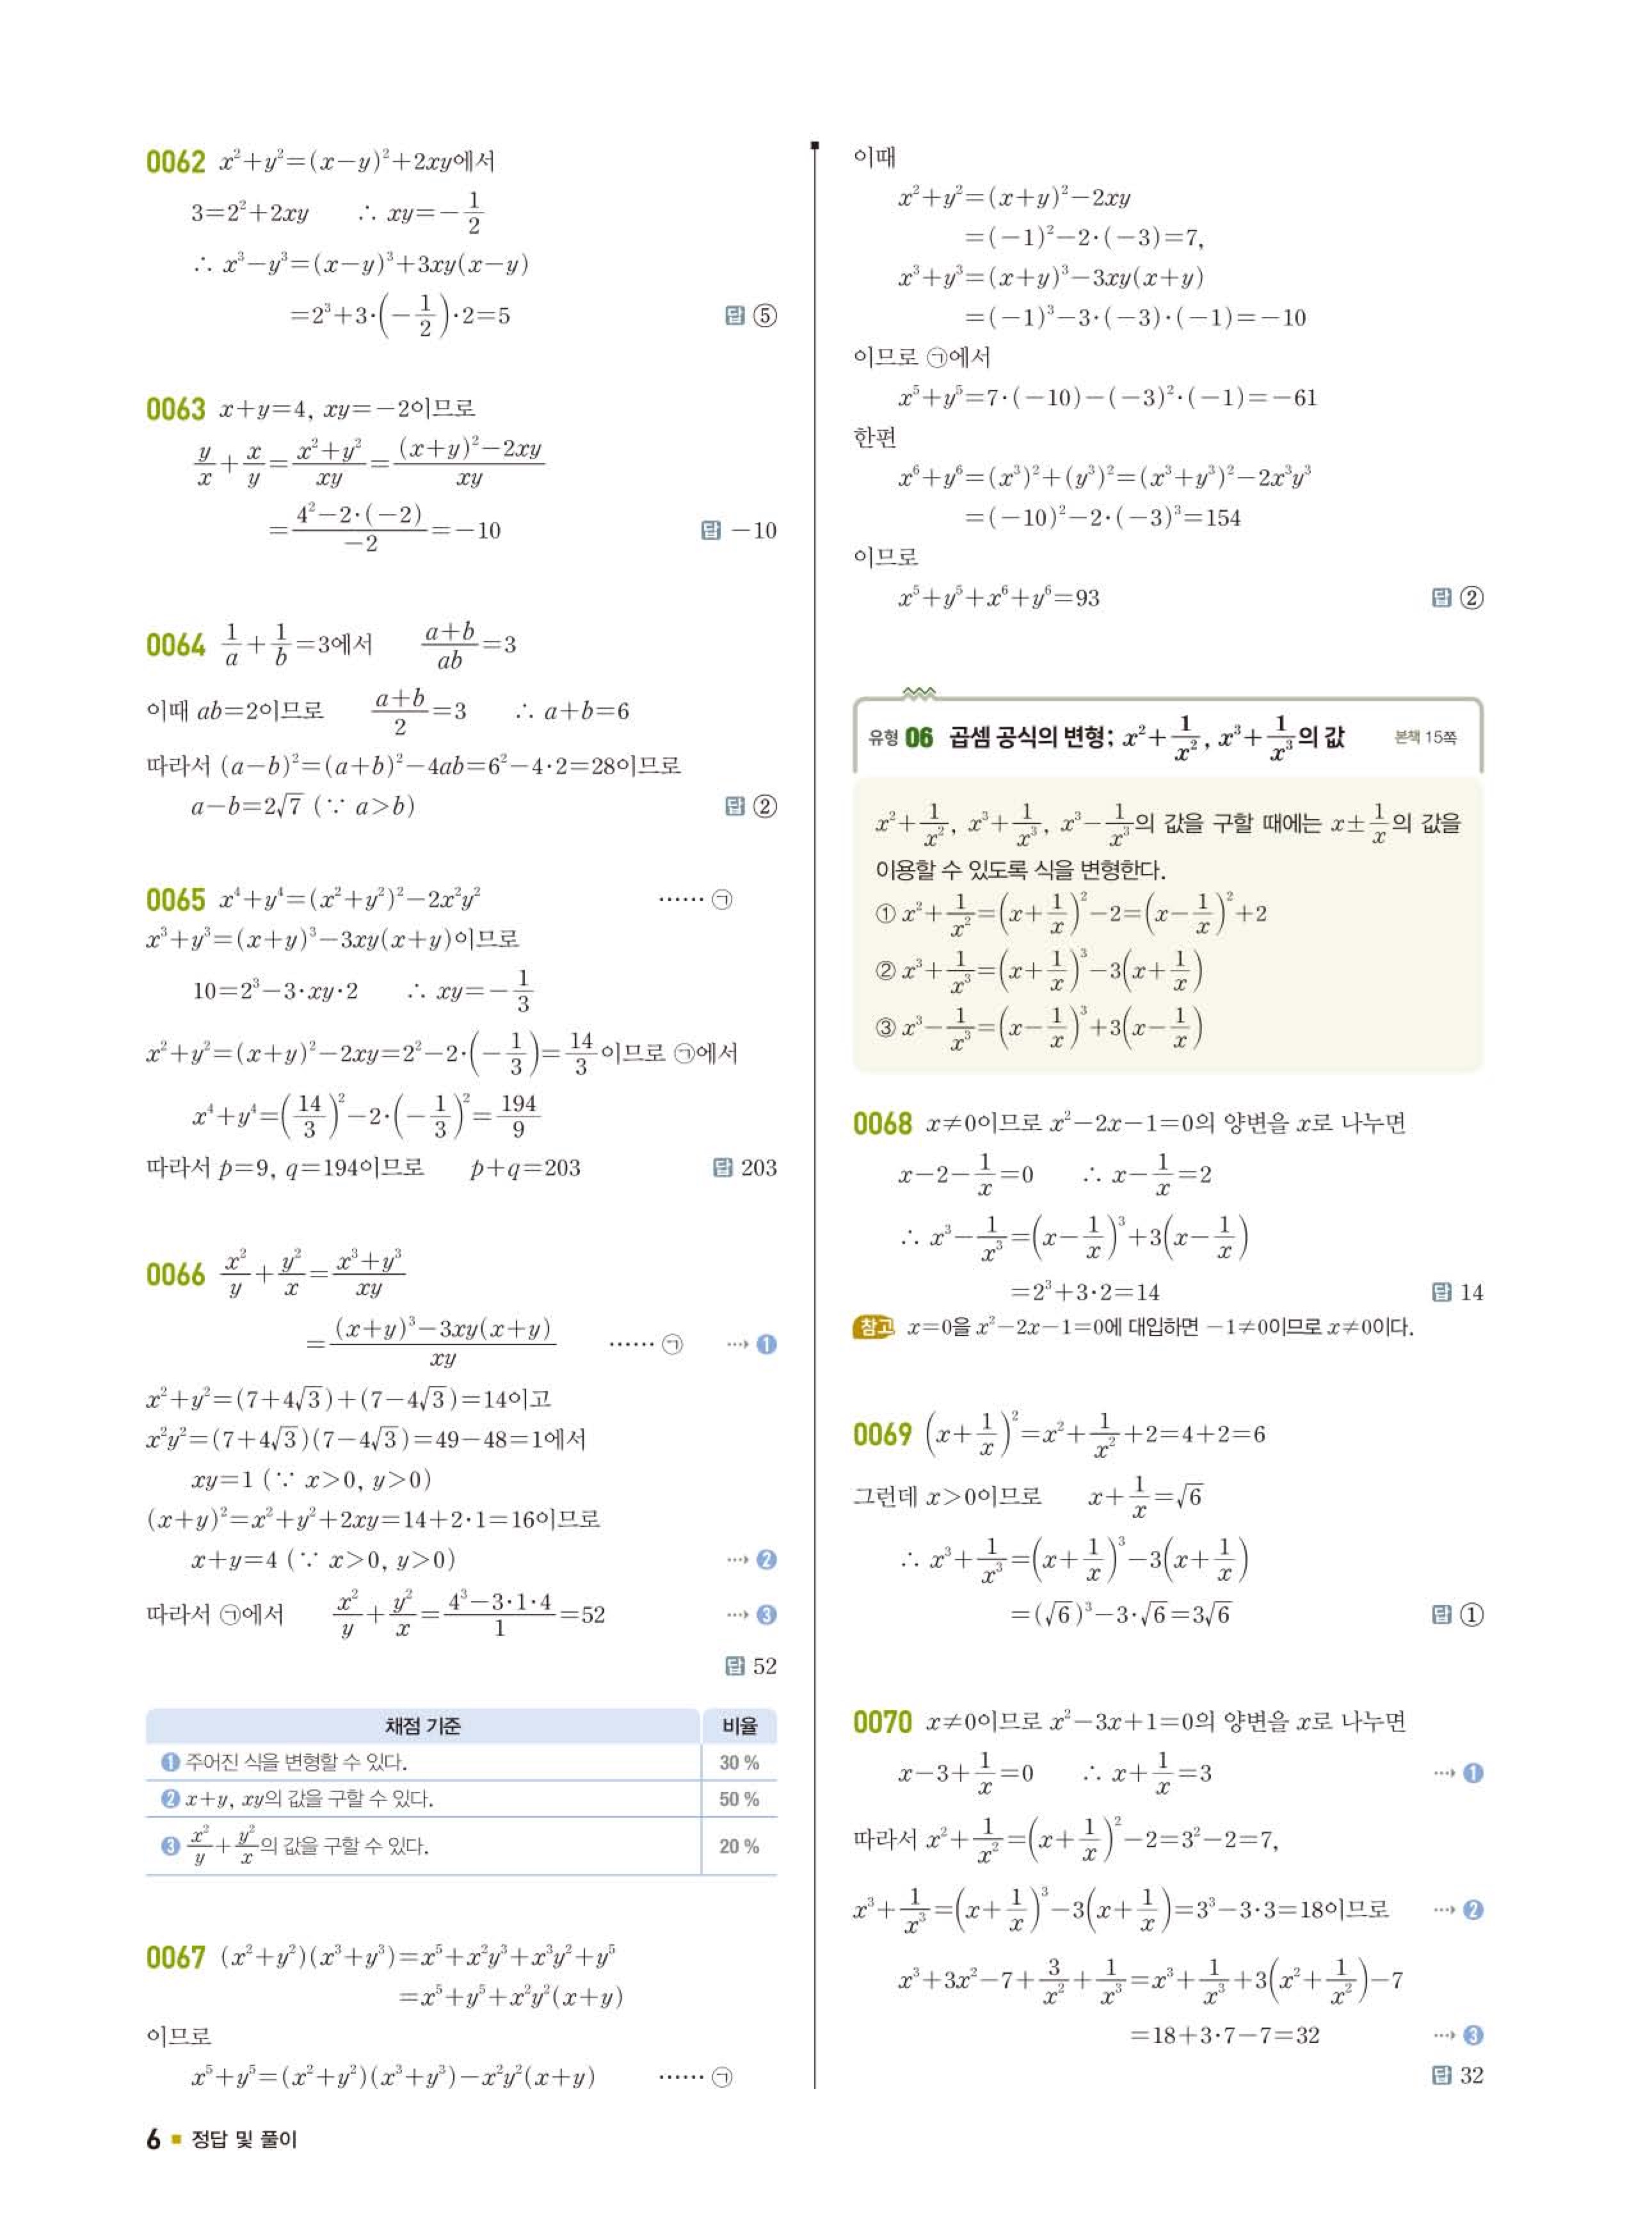 0062 x²+y²=(x−y)²+2xy에서
3=2²+2xy ∴ xy=−1/2
∴ x³−y³=(x−y)³+3xy(x−y)
=2³+3·(−1/2)·2=5 답 ⑤
0063 x+y=4, xy=−2이므로
y/x+x/y=(x²+y²)/xy=((x+y)²−2xy)/xy
=(4²−2·(−2))/−2=−10 답 −10
0064 1/a+1/b=3에서 (a+b)/ab=3
이때 ab=2이므로 (a+b)/2=3 ∴ a+b=6
따라서 (a−b)²=(a+b)²−4ab=6²−4·2=28이므로
a−b=2√7 (∵ a>b) 답 ②
0065 x⁴+y⁴=(x²+y²)²−2x²y² ······ ㉠
x³+y³=(x+y)³−3xy(x+y)이므로
10=2³−3·xy·2 ∴ xy=−1/3
x²+y²=(x+y)²−2xy=2²−2·(−1/3)=14/3이므로 ㉠에서
x⁴+y⁴=(14/3)²−2·(−1/3)²=194/9
따라서 p=9, q=194이므로 p+q=203 답 203
0066 x²/y+y²/x=(x³+y³)/xy
=((x+y)³−3xy(x+y))/xy ······ ㉠ ⋯→ ❶
x²+y²=(7+4√3)+(7−4√3)=14이고
x²y²=(7+4√3)(7−4√3)=49−48=1에서
xy=1 (∵ x>0, y>0)
(x+y)²=x²+y²+2xy=14+2·1=16이므로
x+y=4 (∵ x>0, y>0) ⋯→ ❷
따라서 ㉠에서 x²/y+y²/x=(4³−3·1·4)/1=52 ⋯→ ❸
답 52
채점 기준 비율
❶ 주어진 식을 변형할 수 있다. 30 %
❷ x+y, xy의 값을 구할 수 있다. 50 %
❸ x²/y+y²/x의 값을 구할 수 있다. 20 %
0067 (x²+y²)(x³+y³)=x⁵+x²y³+x³y²+y⁵
=x⁵+y⁵+x²y²(x+y)
이므로
x⁵+y⁵=(x²+y²)(x³+y³)−x²y²(x+y) ······ ㉠
이때
x²+y²=(x+y)²−2xy
=(−1)²−2·(−3)=7,
x³+y³=(x+y)³−3xy(x+y)
=(−1)³−3·(−3)·(−1)=−10
이므로 ㉠에서
x⁵+y⁵=7·(−10)−(−3)²·(−1)=−61
한편
x⁶+y⁶=(x³)²+(y³)²=(x³+y³)²−2x³y³
=(−10)²−2·(−3)³=154
이므로
x⁵+y⁵+x⁶+y⁶=93 답 ②
유형 06 곱셈 공식의 변형; x²+1/x², x³+1/x³의 값 본책 15쪽
x²+1/x², x³+1/x³, x³−1/x³의 값을 구할 때에는 x±1/x의 값을
이용할 수 있도록 식을 변형한다.
① x²+1/x²=(x+1/x)²−2=(x−1/x)²+2
② x³+1/x³=(x+1/x)³−3(x+1/x)
③ x³−1/x³=(x−1/x)³+3(x−1/x)
0068 x≠0이므로 x²−2x−1=0의 양변을 x로 나누면
x−2−1/x=0 ∴ x−1/x=2
∴ x³−1/x³=(x−1/x)³+3(x−1/x)
=2³+3·2=14 답 14
참고 x=0을 x²−2x−1=0에 대입하면 −1≠0이므로 x≠0이다.
0069 (x+1/x)²=x²+1/x²+2=4+2=6
그런데 x>0이므로 x+1/x=√6
∴ x³+1/x³=(x+1/x)³−3(x+1/x)
=(√6)³−3·√6=3√6 답 ①
0070 x≠0이므로 x²−3x+1=0의 양변을 x로 나누면
x−3+1/x=0 ∴ x+1/x=3 ⋯→ ❶
따라서 x²+1/x²=(x+1/x)²−2=3²−2=7,
x³+1/x³=(x+1/x)³−3(x+1/x)=3³−3·3=18이므로 ⋯→ ❷
x³+3x²−7+3/x²+1/x³=x³+1/x³+3(x²+1/x²)−7
=18+3·7−7=32 ⋯→ ❸
답 32
6 ■ 정답 및 풀이